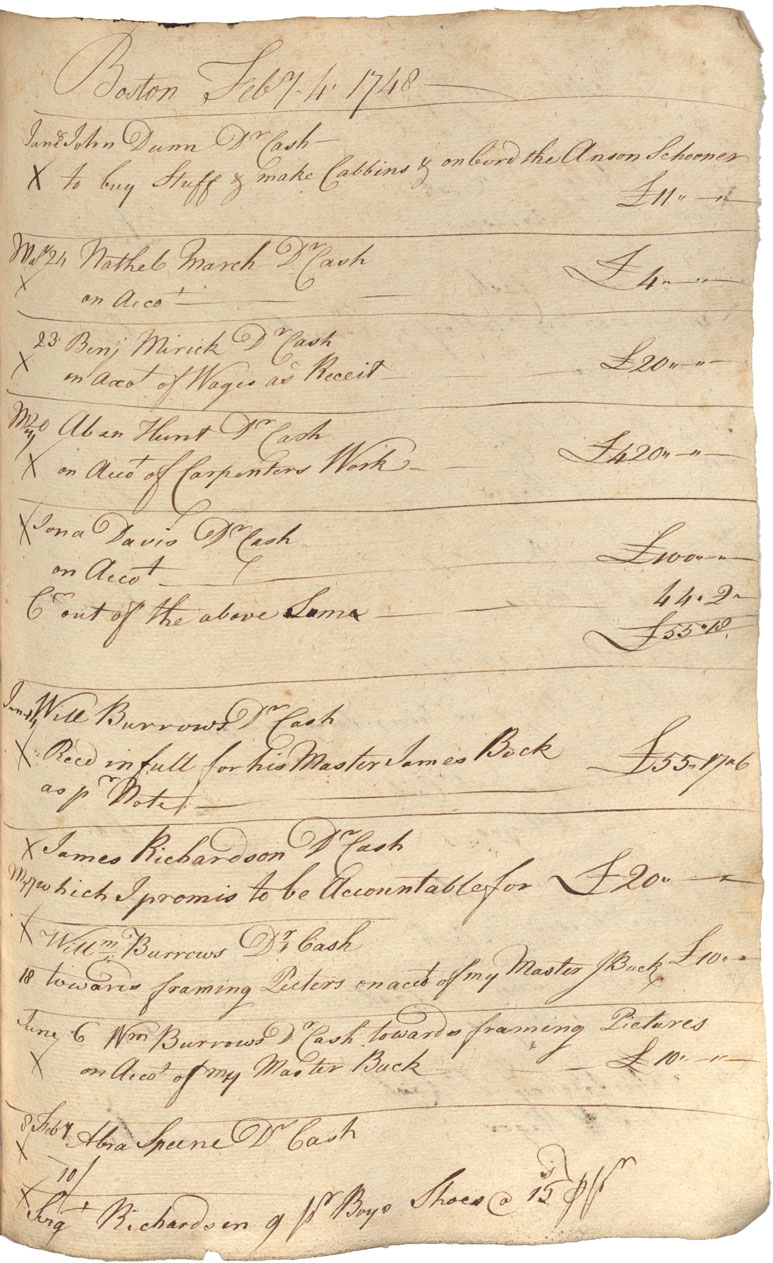 Boston Feby. 4. 1748
June 8 John Dunn Dr Cash
X to buy Stuff & make Cabbins & onbord the Anson Schooner
£11 " — " —
May 24 Nathel March Dr Cash
X on Accot £4 " — " —
23 Benj Mirick Dr Cash
X on Accot of Wages as Receit £20 " — " —
May 20 Aban Hunt Dr Cash
X on Accot of Carpenters Work £420 " — " —
X Jona Davis Dr Cash
on Accot £100 " — " —
Cr out of the above Some 44 " 2 "
£55 " 18
June 14 Will Burrows Dr Cash
X Recd in full for his Master James Buck £55 " 17 " 6
as pr Note
X James Richardson Dr Cash
My 17 which I promis to be Accountable for £20 " — " —
X Willm Burrows Dr Cash
18 towards framing Picters on acct of my Master J Buck £10 " "
June 6 Wm Burrows Dr Cash towards framing Pictures
X on Accot of my Master Buck £10 " — " —
8 Feby Abra Speene Dr Cash
X 10/
X Serjt Richardson 9 pr Boys Shoes @ 15s p pr